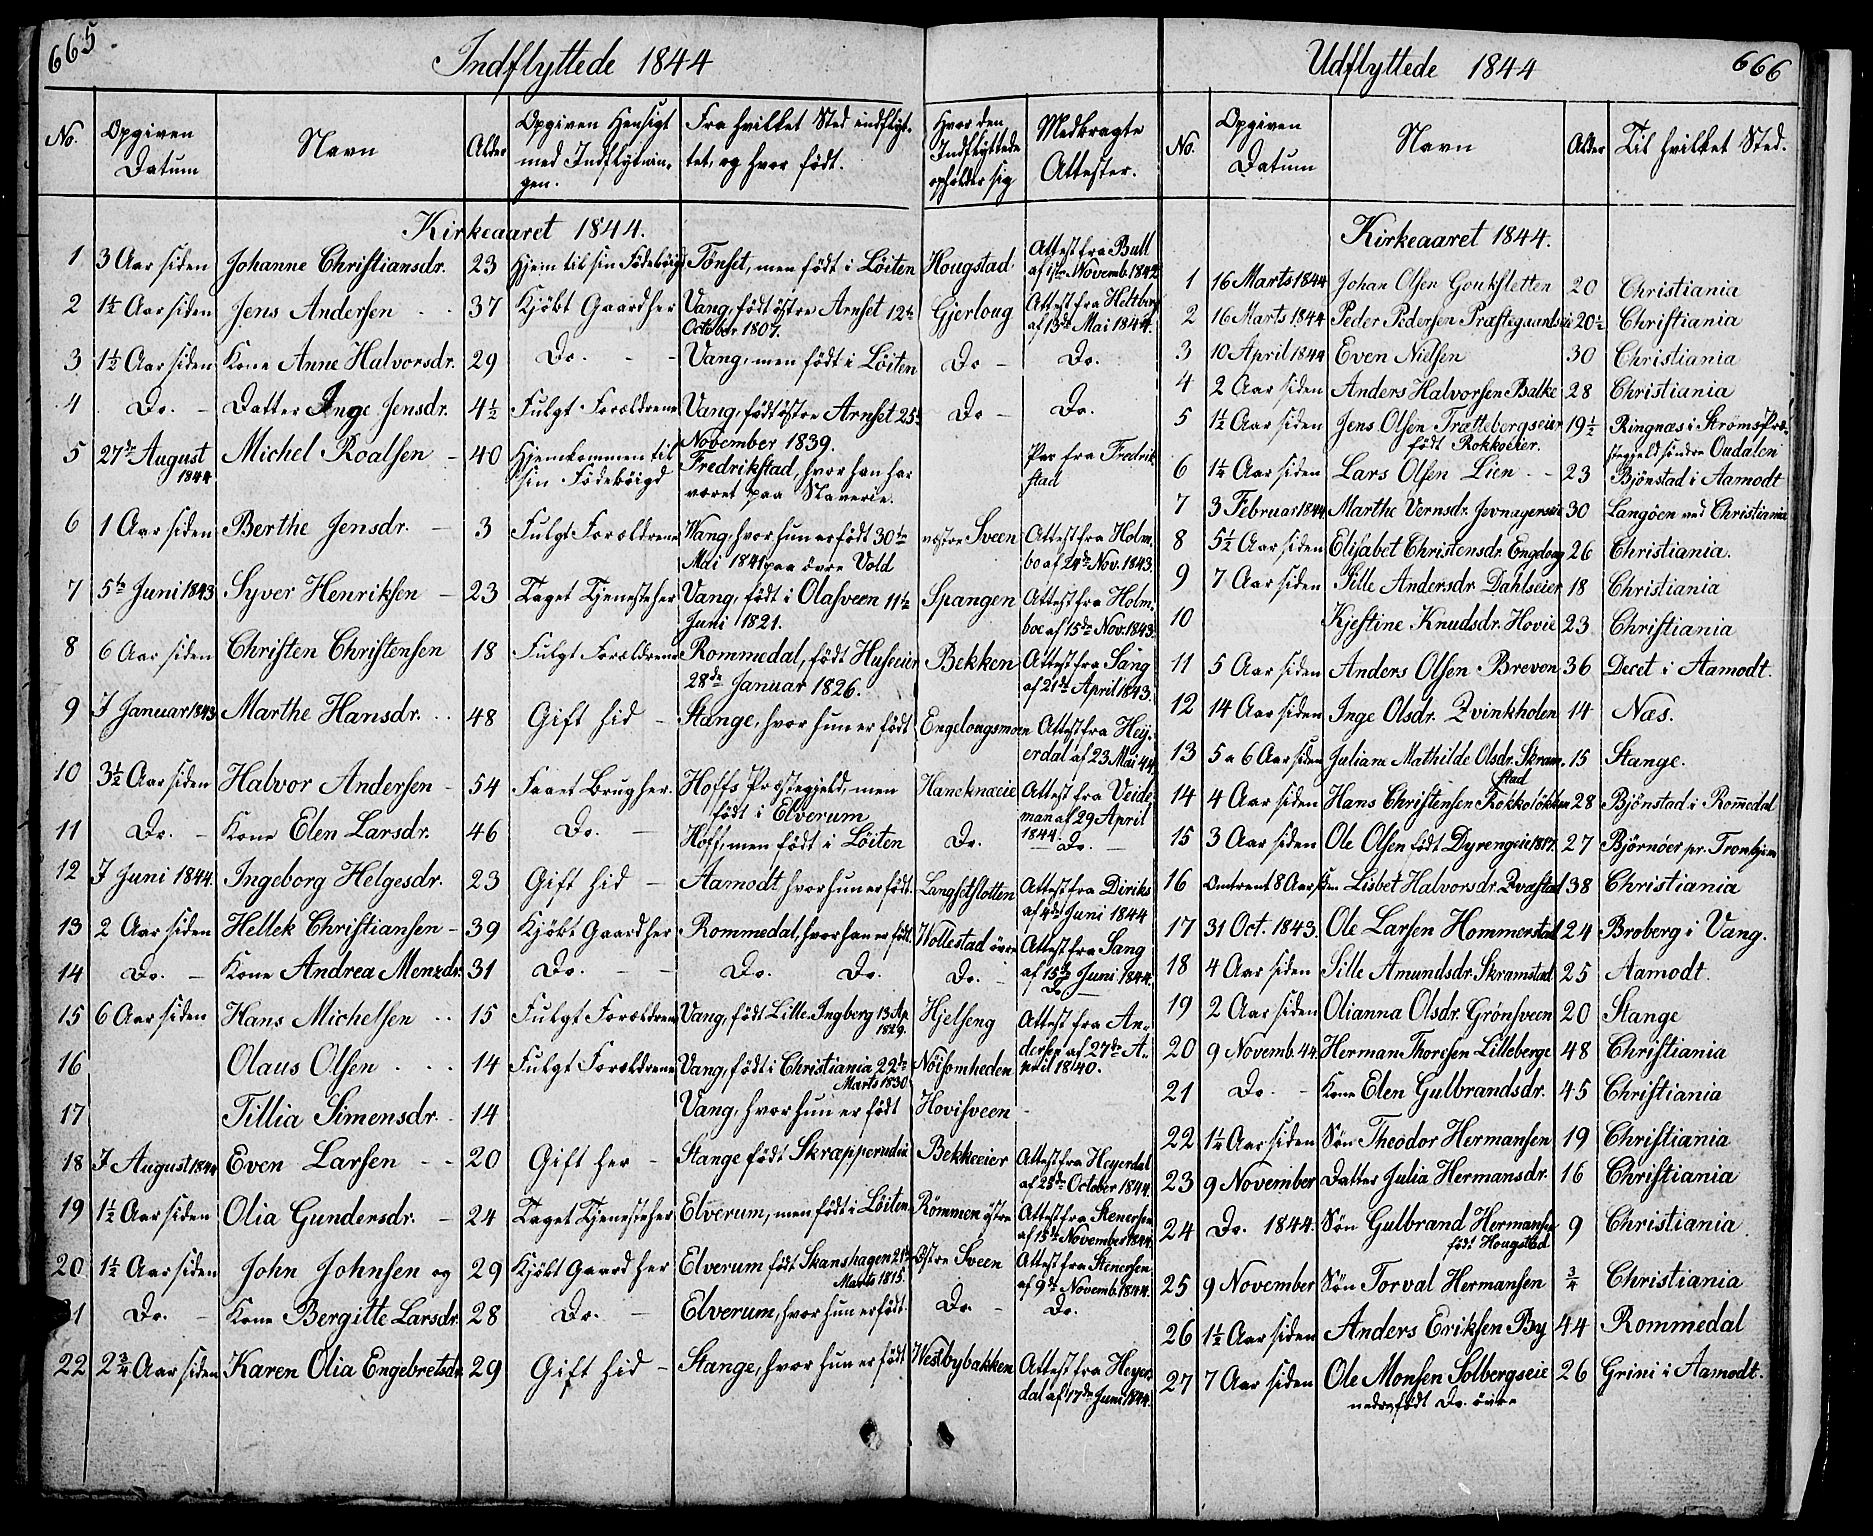 665.
Indflyttede 1844
No. | Opgiven Datum | Navn | Alder | Opgiven Hensigt med Indflytningen. | Fra hvilket Sted indflyttet, og hvor født. | Hvor den Indflyttede opholder sig | Medbragte Attester.
Kirkeaaret 1844.
1 | 3 Aar siden | Johanne Christiansdr. | 23 | Hjem til sin Födebögd | Tönset, men födt i Löiten | Hougstad | Attest fra Bull af 1ste Novemb. 1842
2 | 1½ Aar siden | Jens Andersen | 37 | Kjöbt Gaard her | Vang, födt östre Arnset 12te October 1807. | Gjerloug | Attest fra Heltberg af 13de Mai 1844.
3 | 1½ Aar siden | Kone Anne Halvorsdr. | 29 | Do. | Vang, men födt i Löiten | Do | Do.
4 | Do. | Datter Inge Jensdr. | 4½ | Fulgt Forældrene | Vang, födt östre Arnset 25de November 1839. | Do | Do.
5 | 27de August 1844 | Michel Roalsen | 40 | Hjemkommen til sin Födebögd | Fredrikstad, hvor han har været paa Slaverie. | | Pas fra Fredrikstad
6 | 1 Aar siden | Berthe Jensdr. | 3 | Fulgt Forældrene | Vang, hvor hun er födt 30te Mai 1841 paa övre Vold | næstre Sveen | Attest fra Holmbo af 24de Nov. 1843.
7 | 5te Juni 1843 | Syver Henriksen | 23 | Taget Tjeneste her | Vang, födt i Olasveen 11te Juni 1821. | Spangen | Attest fra Holmboe af 15de Nov. 1843.
8 | 6 Aar siden | Christen Christensen | 18 | Fulgt Forældrene | Rommedal, födt Huseeier 28de Januar 1826. | Bekken | Attest fra Sang af 21de April 1843.
9 | I Januar 1843 | Marthe Hansdr. | 48 | Gift hid | Stange, hvor hun er födt | Engelougsmoen | Attest fra Heyerdal af 23 Mai 44.
10 | 3½ Aar siden | Halvor Andersen | 54 | Faaet Brug her. | Hoffs Præstegjeld, men födt i Elverum | Haneknæeie | Attest fra Veideman af 29 April 1844.
11 | Do. | Kone Elen Larsdr. | 46 | Do. | Hoff, men födt i Löiten | Do. | Do.
12 | I Juni 1844. | Ingeborg Helgesdr. | 23 | Gift hid | Aamodt hvor hun er födt. | Langsetslotten | Attest fra Diriks af 4de Juni 1844
13 | 2 Aar siden | Hellek Christiansen | 39 | Kjöbt Gaard her | Rommedal, hvor han er födt. | Wollestad övre | Attest fra Sang af 15de Juni 1844.
14 | Do. | Kone Andrea Menzdr. | 31 | Do. | Do. Do. | Do. | Do
15 | 6 Aar siden | Hans Michelsen | 15 | Fulgt Forældrene | Vang, födt Lille Ingberg 13 Ap. 1829. | Hjelseng | Attest fra Andersen af 27de April 1840.
16 | | Olaus Olsen | 14 | Fulgt Forældrene | Vang, födt i Christiania 22de Marts 1830 | Nöisomheden
17 | | Tillia Simensdr. | 14 | | Vang, hvor hun er födt | Hovisveen
18 | I August 1844 | Even Larsen | 20 | Gift her | Stange födt Skræpperudie | Bekkeeier | Attest fra Heyerdal af 25de October 1844.
19 | 1½ Aar siden | Olia Gundersdr. | 24 | Taget Tjeneste her | Elverum, men födt i Löiten | Römmen östre | Attest fra Stenersen af 15de November 1844.
20 | 1½ Aar siden | John Johnsen og | 29 | Kjöbt Gaard her | Elverum födt Skanshagen 21de Marts 1815. | Östre Sveen | Attest fra Stenersen af 9de Novemb. 1844.
21 | Do. | Kone Bergitte Larsdr. | 28 | Do. | Elverum, hvor hun er födt. | Do. | Do.
22 | 2¾ Aar siden | Karen Olia Engebretsdr. | 29 | Gift hid | Stange, hvor hun er födt | Westbybakken | Attest fra Heyerdal af 17de Juni 1844.
Udflyttede 1844
666
No. | Opgiven Datum | Navn | Alder | Til hvilket Sted.
Kirkeaaret 1844.
1 | 16 Marts 1844 | Johan Olsen Gouksletten | 20 | Christiania
2 | 16 Marts 1844 | Peder Pedersen Præstegaardseie | 20½ | Christiania
3 | 10 April 1844 | Even Nielsen | 30 | Christiania
4 | 2 Aar siden | Anders Halvorsen Balke | 28 | Christiania
5 | 1½ Aar siden | Jens Olsen Trættebergseier födt Rokkoeier. | 19½ | Ringnæs i Ströms Præstegjeld söndre Oudalen
6 | 1½ Aar siden | Lars Olsen Lien | 23 | Bjönstad i Aamodt
7 | 3 Februar 1844 | Marthe Vernsdr. Jevnagerseie | 30 | Langöen ved Christiania
8 | 5½ Aar siden | Elisabet Christensdr. Engeloug | 26 | Christiania.
9 | 7 Aar siden | Sille Andersdr. Dahlseier | 18 | Christiania
10 | | Kjestine Knudsdr. Hovie | 23 | Christiania
11 | 5 Aar siden | Anders Olsen Breven | 36 | Deset i Aamodt.
12 | 14 Aar siden | Inge Olsdr. Qvinkholen | 14 | Næs.
13 | 5 a 6 Aar siden | Juliane Mathilde Olsdr. Skramstad | 15 | Stange.
14 | 4 Aar siden | Hans Christensen Rokkolökken | 28 | Bjönstad i Rommedal
15 | 3 Aar siden | Ole Olsen födt Dyrengeie 1817. | 27 | Björnöer pr. Tronhjem
16 | Omtrent 8 Aar siden | Lisbet Halvorsdr. Qvæstad | 38 | Christiania
17 | 31 Oct. 1843. | Ole Larsen Hommerstad | 24 | Broberg i Vang.
18 | 4 Aar siden | Sille Amundsdr. Skramstad | 25 | Aamodt.
19 | 2 Aar siden | Olianna Olsdr. Grönsveen | 20 | Stange
20 | 9 Novemb. 44. | Herman Thoresen Lilleberge | 48 | Christiania
21 | Do. | Kone Elen Gulbrandsdr. | 45 | Christiania
22 | 1½ Aar siden | Sön Theodor Hermansen | 19 | Christiania
23 | 9 November | Datter Julia Hermansdr. | 16 | Christiania
24 | Do. 1844. | Sön Gulbrand Hermansen födt Hougstad | 9 | Christiania
25 | 9 November | Sön Torval Hermansen | ¾ | Christiania
26 | 1½ Aar siden | Anders Eriksen By | 44 | Rommedal
27 | 7 Aar siden | Ole Monsen Solbergseie nedre födt Do. övre | 26 | Grini i Aamodt.